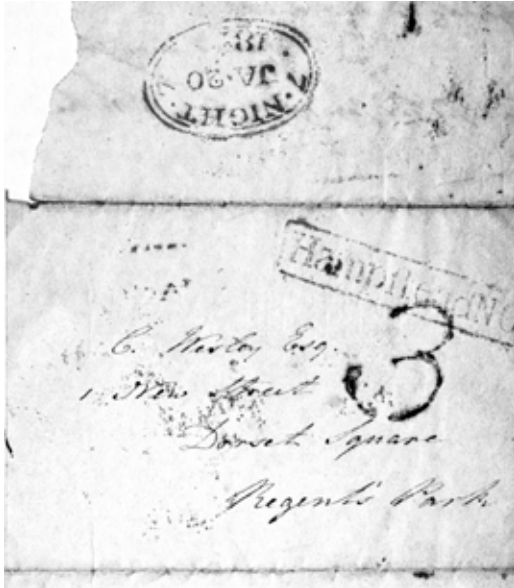 7 · NIGHT · 7
JA · 20
Hampstead
3
C. Wesley Esq.
1 New Street
Dorset Square
Regent's Park